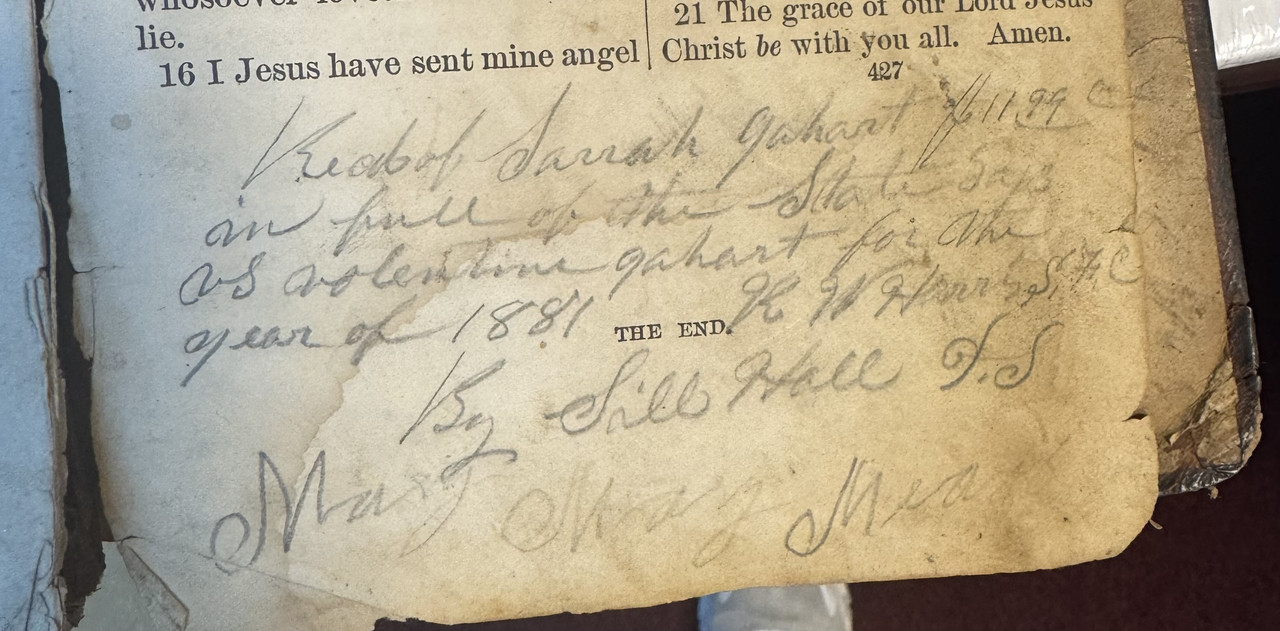 lie.
16 I Jesus have sent mine angel
21 The grace of our Lord Jesus
Christ be with you all. Amen.
427
Recd of Sarrah gahart $11.99
in full of the State
vs volentine gahart for the
year of 1881
THE END.
By Sill Hall D.S
Mary Mary